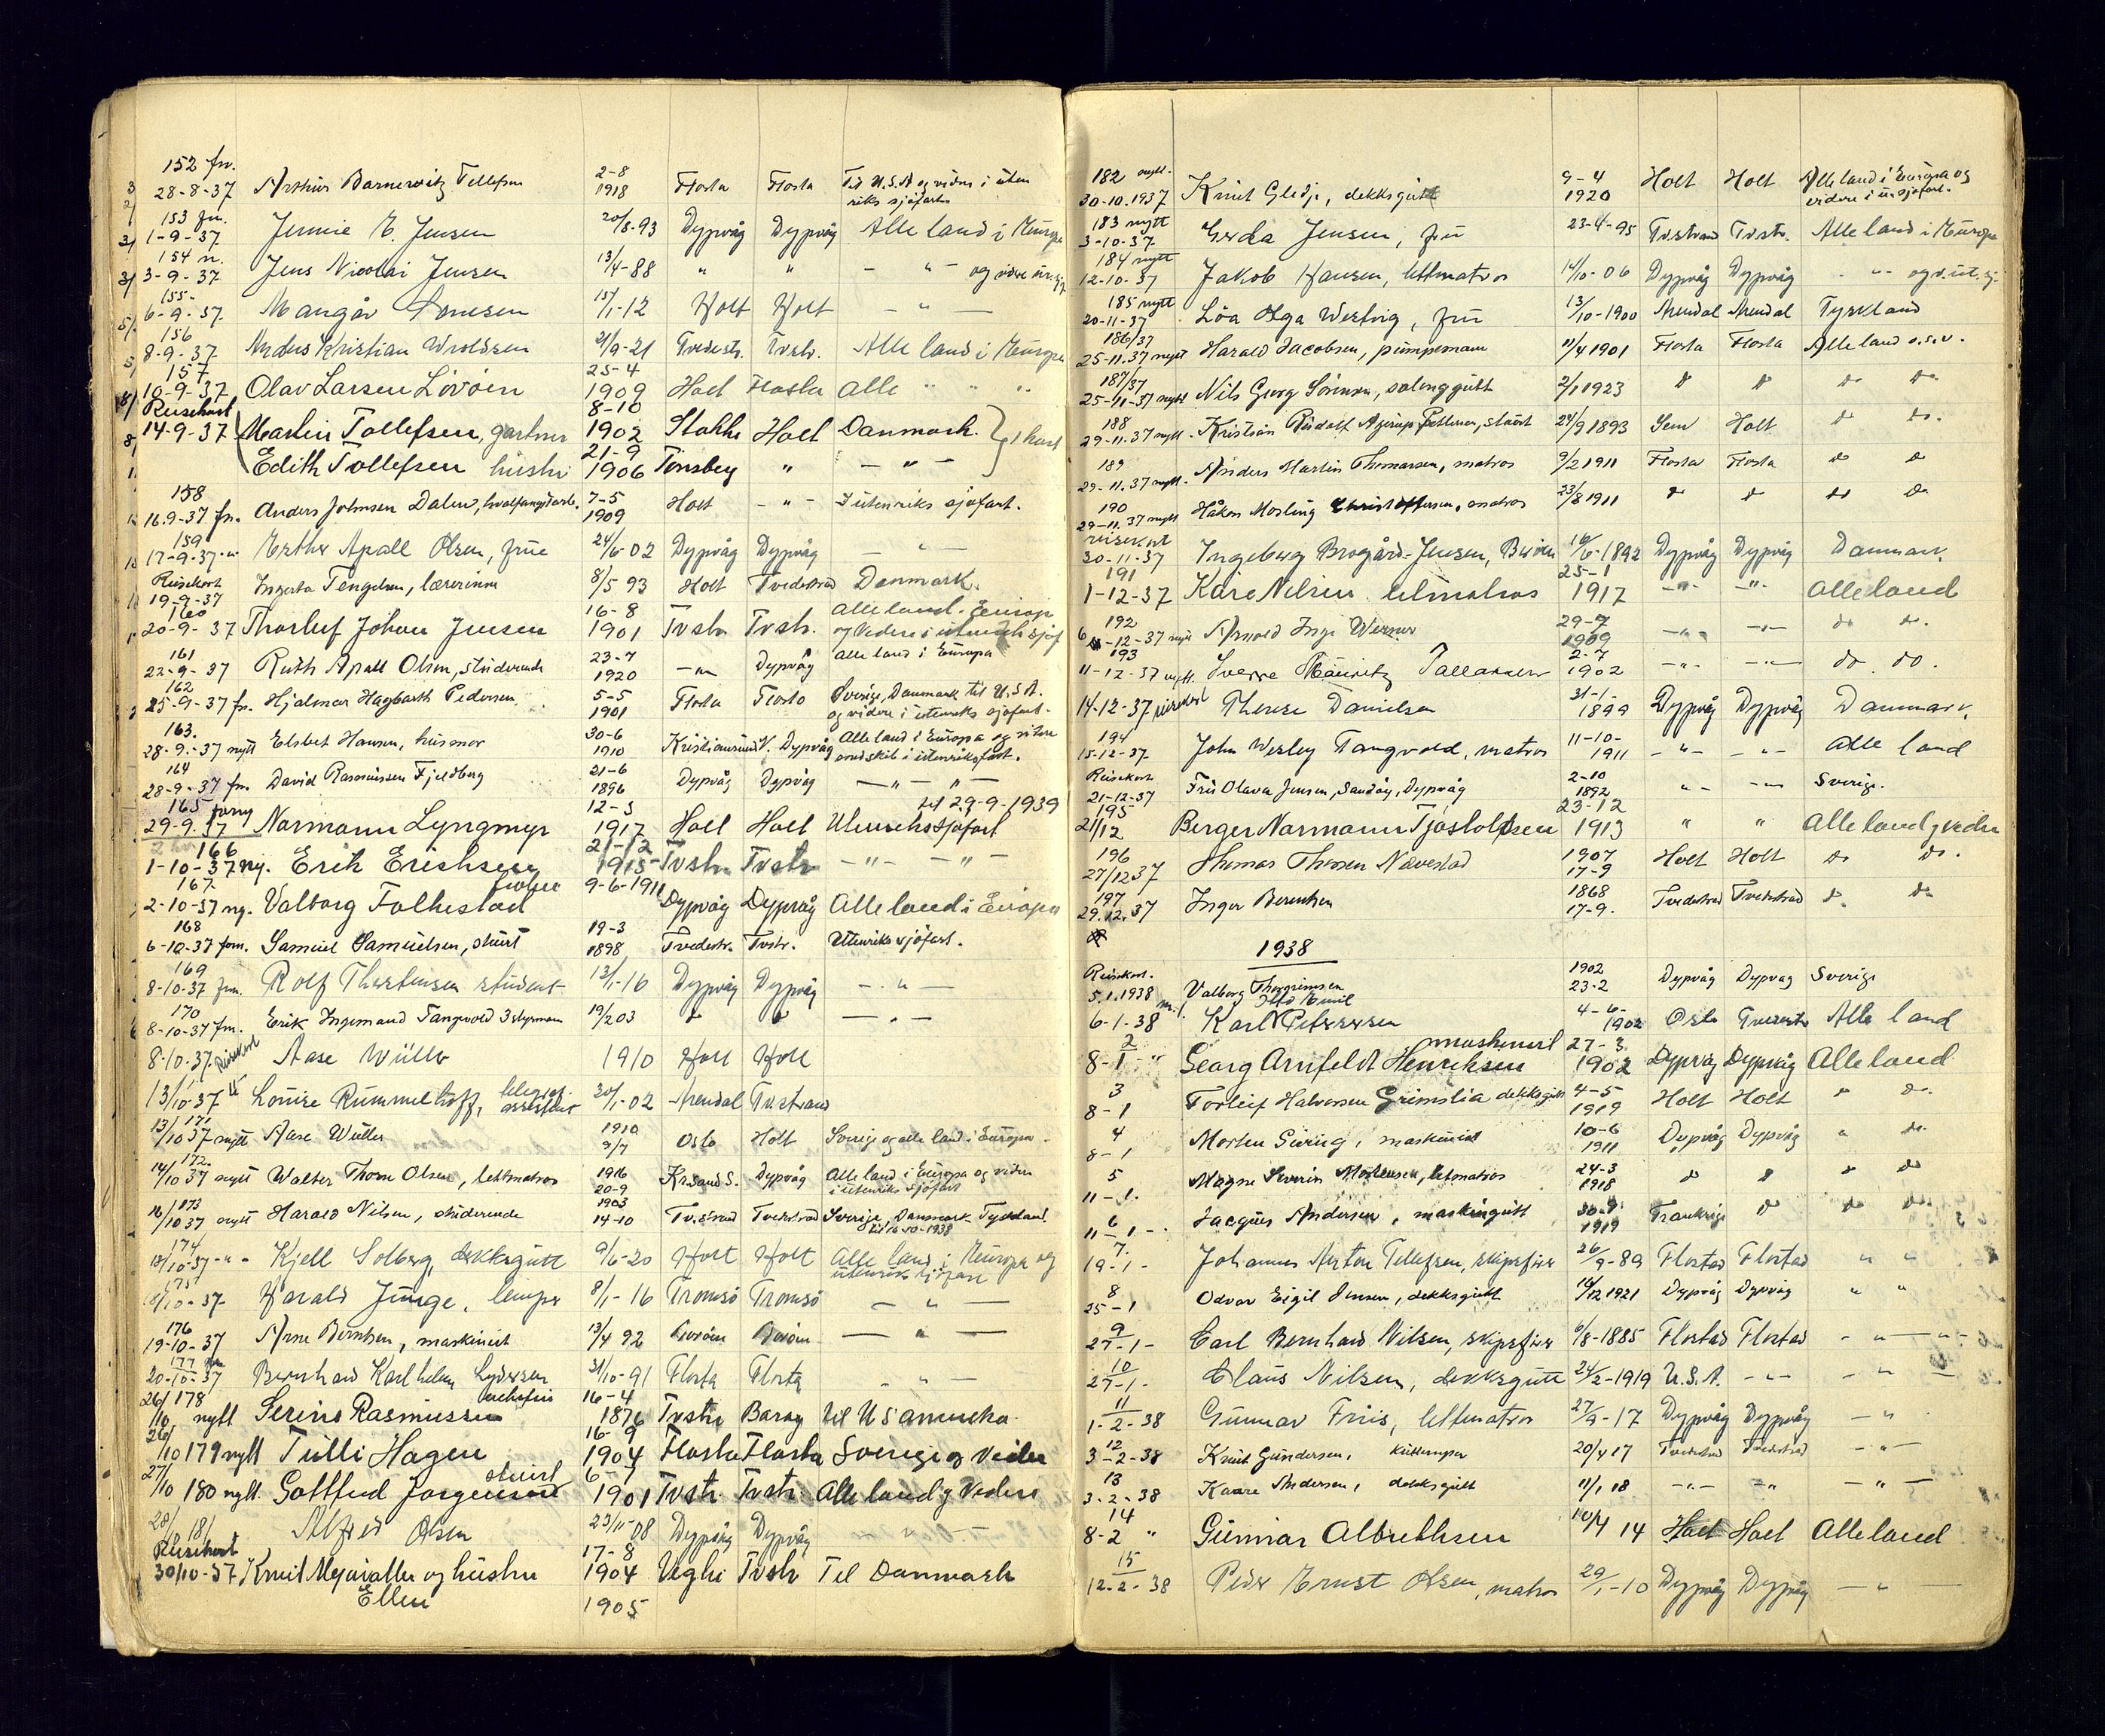 152 fn.
28-8-37 Arthur Barnewitz Tellefsen 2-8 1918 Flosta Flosta Til U.S.A og videre i uten
riks sjøfart.
153 fn.
1-9-37 Jennie E. Jensen 20/8-93 Dypvåg Dypvåg Alle land i Europa
154 n.
3-9-37 Jens Nicolai Jensen 13/4-88 " " - " - og videre
155-
6-9-37. Mangår 15/1-12 Holt Holt - " -
156
8-9-37 Anders Kristian Wroldsen 21/9-21 Tvedestr. Tvstr. Alle land i Europa
157
10-9-37 Olav Larsen Lövöen 25-4 1909 Holt Flosta Alle " " "
Reisekort
14-9-37 Martin Tollefsen, gartner 8-10 1902 Stokke Holt Danmark. } 1 kort
Edith Tollefsen hustru 21-9 1906 Tönsberg " - " -
158
16.9-37 fn. Anders Johnsen Dalen, hvalfangstarb. 7-5 1909 Holt - " - I utenriks sjøfart.
159
17-9-37 -"- Esther Apall Olsen, frue 24/6-02 Dypvåg Dypvåg - " -
Reisekort
19-9-37 Ingerta Tengelsen, lærerinne 8/5 93 Holt Tvedestrand Danmark.
160
20-9-37 Thorleif Johan Jensen 16-8 1901 Tvstr Tvstr. Alle land i Europa
og videre i utenriks sjøf
161
22-9-37 Ruth Apall Olsen, studerende 23-7 1920 -"- Dypvåg alle land i Europa
162
25-9-37 fn. Hjalmar Hagbarth Pedersen 5-5 1901 Flosta Flosta Sverige, Danmark til U.S.A.
og videre i utenriks sjøfart.
163.
28-9-37 nytt Elsbet Hansen, husmor 30-6 1910 Kristiansund N. Dypvåg Alle land i Europa og videre
ombord skib i utenriksfart.
164
28-9-37 fn. David Rasmussen Fjeldberg 21-6 1896 Dypvåg Dypvåg - " - " -
165 forny
29-9-37 Normann Lyngmyr 12-3 1917 Holt Holt Utenrikssjøfart til 29-9-1939
166
1-10-37 ny. Erik Erichsen 21-12 1915 Tvstr Tvstr - " - - " -
167.
2-10-37 ny. Valborg Folkestad frøken 9-6-1911 Dypvåg Dypvåg Alle land i Europa
168
6-10-37 forn. Samuel Samuelsen, stuert 19-3 1898 Tvedestr. Tvstr. Utenriks sjøfart.
169
8-10-37 fn. Rolf Thorstensen student 13/1-16 Dypvåg Dypvåg - " -
170
8-10-37 fn. Erik Ingemand Tangvold 3 styrmann 19/2 03 do do - " -
8-10-37. Reisekort Aase Wüller 1910 Holt Holt
13/10-37 Louise Rummelhoff, telegraf- assistent 30/1-02 Arendal Tvstrand
171
13/10 37 nytt Aase Wüller 1910 9/7 Oslo Holt Sverige og alle land i Europa
172
14/10 37 nytt Walter Thom Olsen, lettmatros 1916 20-9 Kr.sand S. Dypvåg Alle land i Europa og videre
i utenriks sjøfart
173
16/10 37 nytt Harald Nilsen, studerende 1903 14-10 Tv.strand Tvedestrand Sverige, Danmark Tyskland
til 16-10-1938
174
18/10-37 -"- Kjell Solberg, dekksgutt 9/6-20 Holt Holt Alle land i Europa og
utenriks sjøfart
175
18/10-37 Harald Junge, lemper 8/1-16 Tromsö Tromsö - " -
176
19-10-37 Arne Berntsen, maskinist 13/4 92 - " -
177 fn
20-10-37 Bernhard Karl helm Lydersen 31/10-91 Flosta Flosta - " -
26/10 178 nytt Serine Rasmussen enkefru 16-4 1876 Tvstr Barøy til U S Amerika
26/10 179 nytt Tulli Hagen 16-9 1904 Flosta Flosta Sverige og Videre
27/10 180 nytt. Gottfred Jørgensen stuert 6-7 1901 Tvstr. Tvstr. Alle land og Videre
28/10 181 Alfred Olsen 23/11-08 Dypvåg Dypvåg - " -
Reisekort
30/10-37 Knut Mejövallen og hustru 17-8 1904 Vegli Tvstr Til Danmark
Ellen 1905
182 nytt.
30-10.1937 Knut Gledje, dekksgutt 9-4 1920 Holt Holt Alle land i Europa og
videre i u. sjøfart.
183 nytt
3-10-37 Gerda Jensen, fru 23-4-95 Tv.strand Tvstr. Alle land i Europa
184 nytt
12-10-37 Jakob Hansen, lettmatros 14/10-06 Dypvåg Dypvåg - " - og v. ut. sj.
185 nytt
20-11-37 Löa Olga Westvig, fru 13/10-1900 Arendal Arendal Tyskland
186/37
25-11.37 nytt Harald Jacobsen, pumpemann 11/4 1901 Flosta Flosta Alle land o.s.v.
187/37
25-11-37 nytt Nils Georg Sörensen, salonggutt 2/1 1923 do do do do
188
29-11.37 nytt. Kristian Rudolf Ajerup Pettersen, stuert 24/9 1893 Sem Holt do do.
189
29-11.37 nytt. Anders Martin Thomassen, matros 9/2 1911 Flosta Flosta do do
190
29-11.37 nytt Håkon Mosling Christoffersen, matros 23/8 1911 do do do do
reisekort
30-11-37 Ingeborg Brogård-Jensen, 16/6-1892 Dypvåg Dypvåg Danmark.
191
1-12-37 Kåre Nilsen letmatros 25-1 1917 -"- -"- Alle land
192
6-12-37 nytt Arnold Inge Werner 29-7 1909 -"- -"- do do.
193
11-12-37 nytt. Sverre Mauritz Tallaksen 2-7 1902 -"- -"- do do.
14-12-37 reisekort Therese Danielsen 31-1- 1899 Dypvåg Dypvåg Danmark.
194
15-12-37. John Wesley Tangvold, matros 11-10- 1911 -"- -"- Alle land
Reisekort
21-12-37 Fru Olava Jensen, Sandøy, Dypvåg 2-10 1892 "- -"- Sverige.
195
21/12 Berger Normann Tjøstolfsen 23-12 1913 " " Alle land, videre
196
27/12 37 Thomas Thomsen Nævestad 1907 17-9 Holt Holt do do.
197
29.12.37 Inger Berentsen 1868 17-9. Tvedestrand Tvedestrand do do
1938
Reisekort.
5.1.1938 Valborg Thorgrimsen 1902 23-2 Dypvåg Dypvåg Sverige
6-1-38 Karl Otto Emil Petersen 4-6- 1902 Oslo Tvedestr Alle land
2
8-1-" Georg Arnfeldt Henriksen maskinist 27-3 1902 Dypvåg Dypvåg Alle land
3
8-1 Torleif Halvorsen Grimslia dekksgutt 4-5 1919 Holt Holt do do.
4
8-1 Morten Gjering, maskinist 10-6 1911 Dypvåg Dypvåg " do.
5
11-1. Magne Severin Mortensen, letmatros 24-3 1918 do do do do
6
11-1-. Jacques Andersen, maskingutt 30-9 1919 Frankrige do do do.
7.
19-1- Johannes Anton Tellefsen, skipsfører 26/9-89 Flostad Flostad " "
8
25-1 Odvar Eigil Jensen, dekksgutt 10/12 1921 Dypvåg Dypvåg " "
9
27-1- Carl Bernhard Nilsen, skipsfører 6/8-1885 Flostad Flostad - " - " -
10
27-1- Claus Nilsen, dekksgutt 24/2-1919 U.S.A. -"- - " -
11
1-2-38 Gunnar Friis, lettmatros 27/9-17 Dypvåg Dypvåg - " -
12
3-2-38 Knut Gundersen, kullemper 20/4 17 Tvedestrand Tvedestrand - " -
13
3-2-38 Kaare Andersen, dekksgutt 11/1 18 -"- -"- - " -
14
8-2 " Gunnar Albrethsen 10/4 14 Holt Holt Alle land
15
12-2-38 Peder Ernst Olsen, matros 29/1-10 Dypvåg Dypvåg - " -